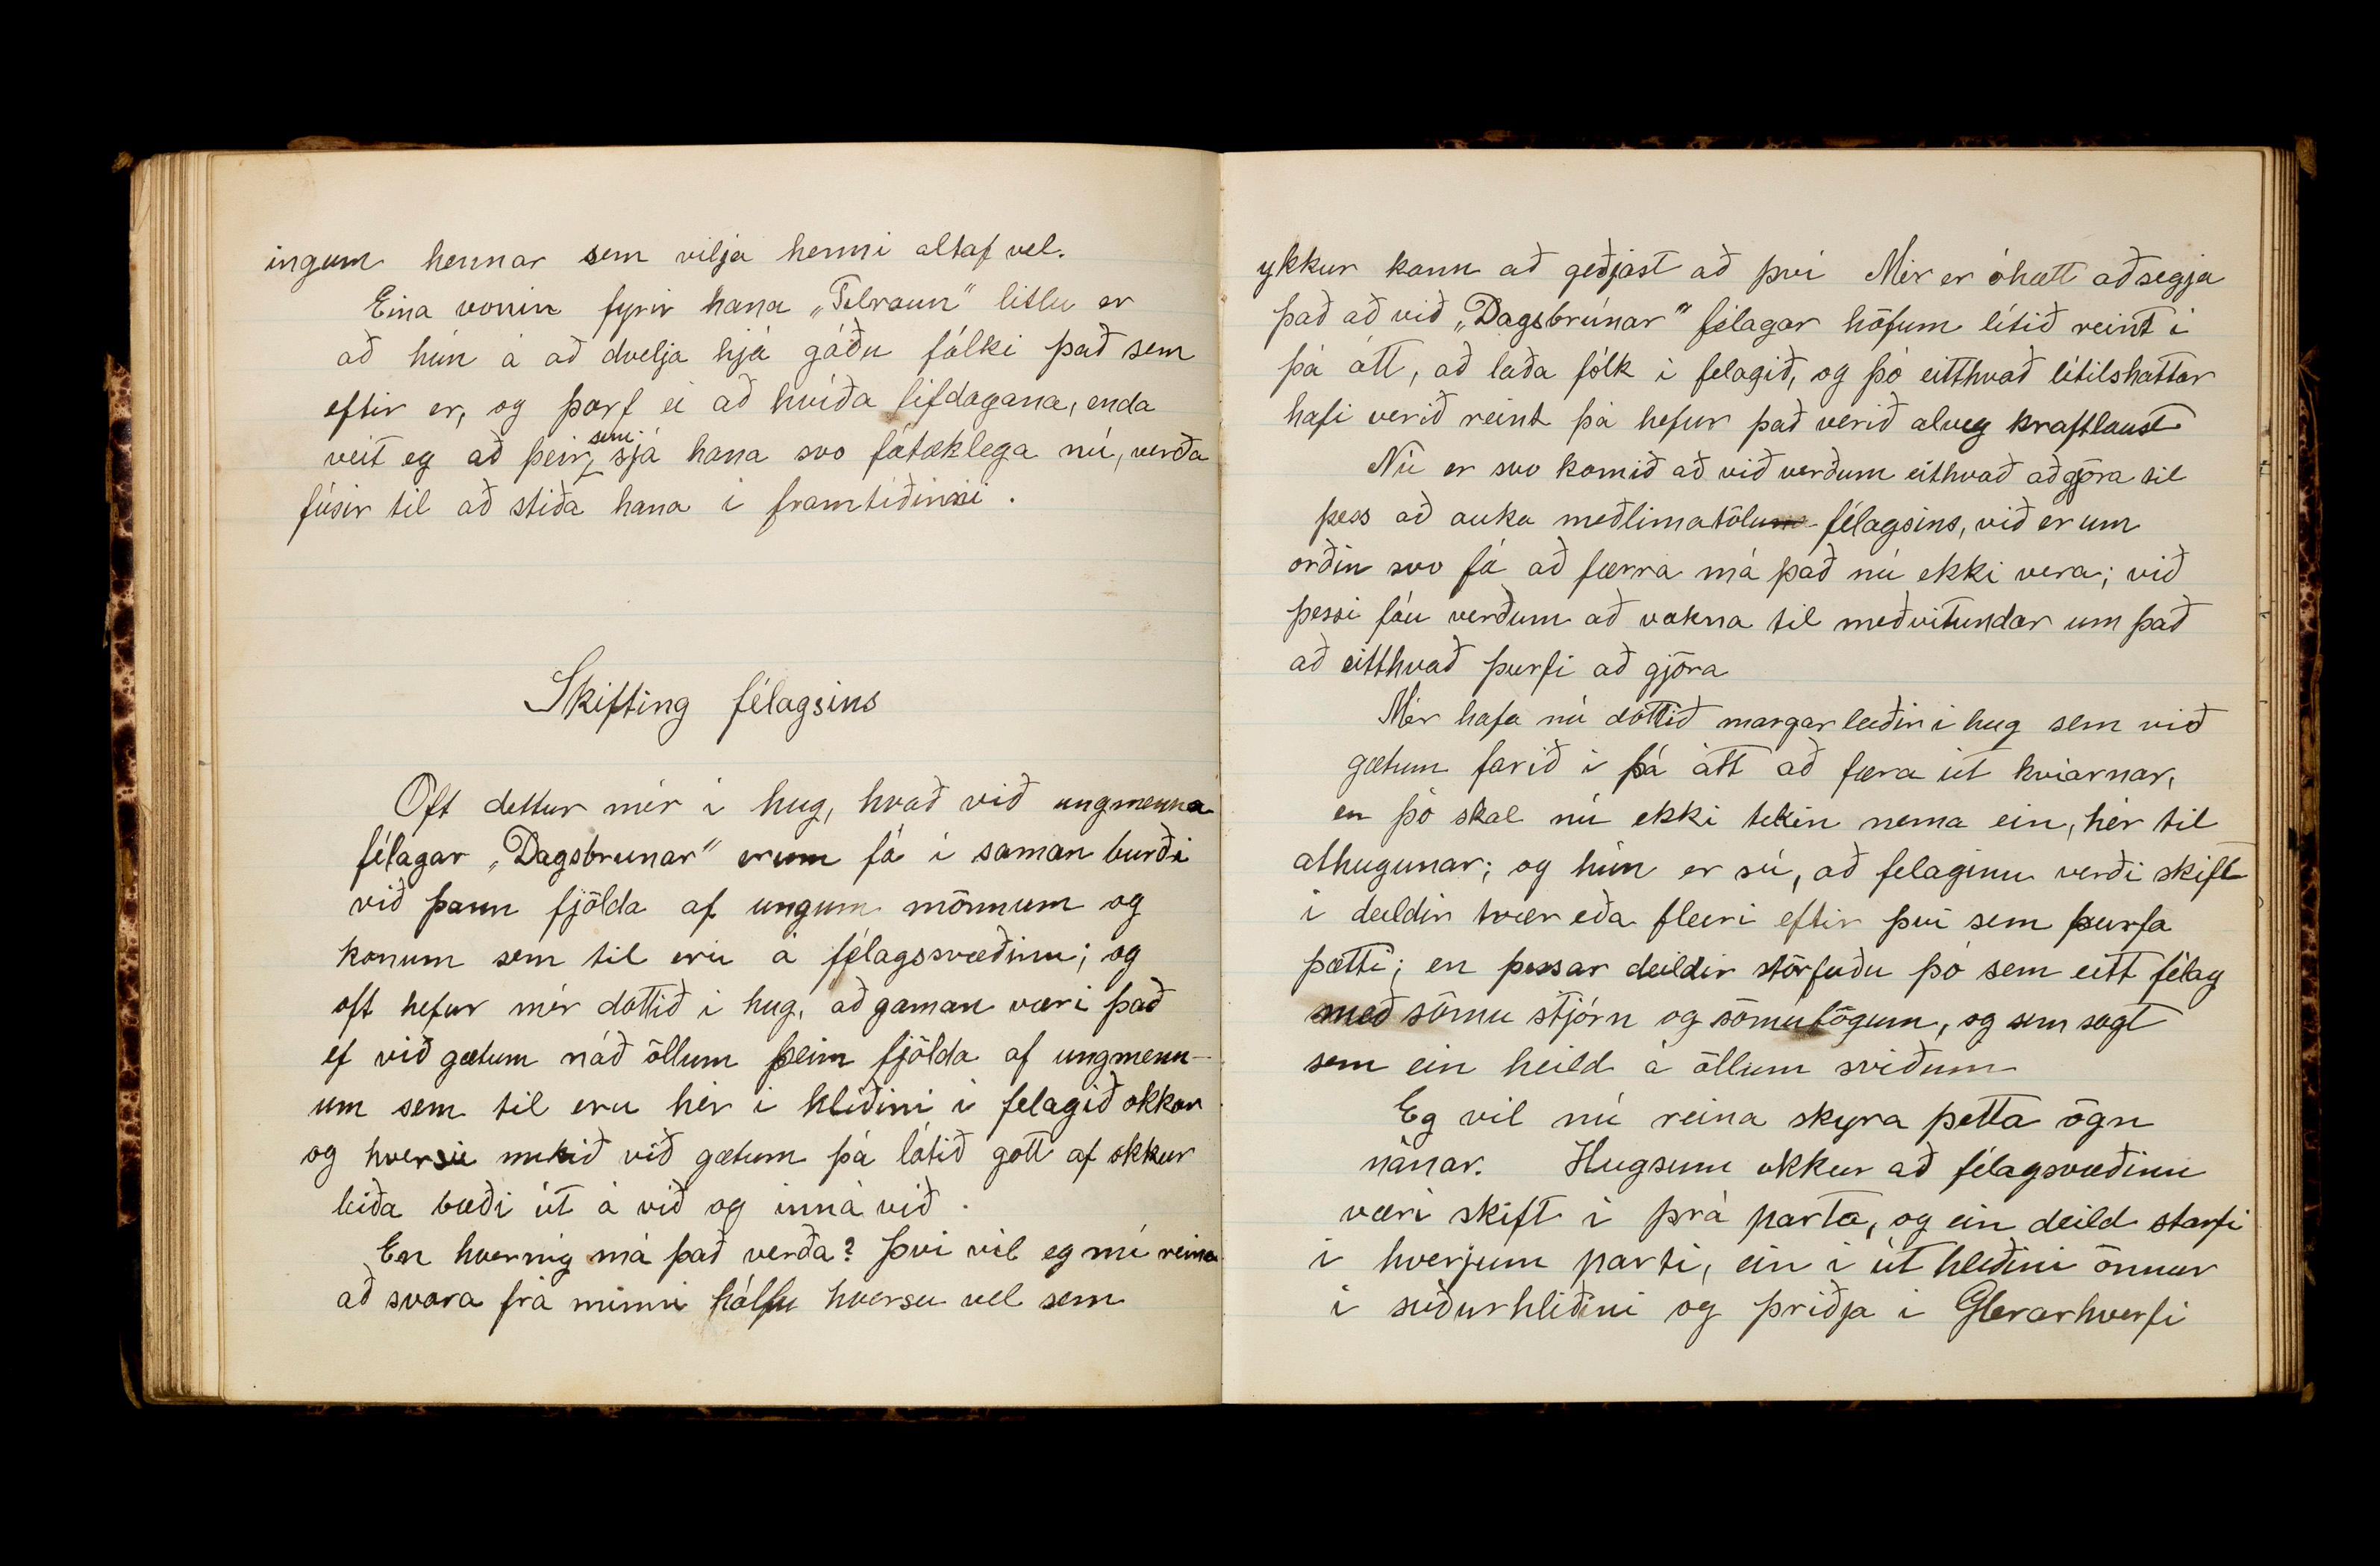 ingum hennar sem vilja henni altaf vel.
Eina vonin fyrir hana „Tilraun" litlu er
að hún á að dvelja hjá góðu fólki það sem
eftir er, og þarf ei að kvíða lifdagana, enda
veit eg að þeir sem sjá hana svo fátæklega nú, verða
fúsir til að stiða hana í framtíðinni.
Skifting félagsins
Oft dettur mér í hug, hvað við ungmenna
félagar „Dagsbrunar" erum fá í saman burði
við þann fjölda af ungum mönnum og
konum sem til eru á félagssvæðinu; og
oft hefur mér dottið í hug, að gaman væri það
ef við gætum náð öllum þeim fjölda af ungmenn-
um sem til eru hér í hlíðini í felagið okkar
og hversu mikið við gætum þá látið gott af okkur
leiða bæði út á við og inná við.
En hvernig má það verða? Því vil eg nú reina
að svara frá minni hálfu hversu vel sem
ykkur kann að geðjast að því Mér er óhætt að segja
það að við „Dagsbrúnar" félagar höfum lítið reint í
þá átt, að laða fólk í felagið, og þó eitthvað lítilsháttar
hafi verið reint þá hefur það verið alveg kraftlaust
Nú er svo komið að við verðum eithvað að gjöra til
þess að auka meðlimatölu félagsins, við erum
orðin svo fá að færra má það nú ekki vera; við
þessi fáu verðum að vakna til meðvitundar um það
að eitthvað þurfi að gjöra
Mér hafa nú dottið margar leiðir í hug sem við
gætum farið í þá átt að færa út kvíarnar,
en þó skal nú ekki tekin nema ein, hér til
athugunar; og hún er sú, að felaginu verði skift
í deildir tvær eða fleiri eftir því sem þurfa
þætti; en þessar deildir störfuðu þó sem eitt félag
með sömu stjórn og sömu lögum, og sem sagt
sem ein heild á öllum sviðum
Eg vil nú reina skyra þetta ögn
nánar. Hugsum okkur að félagsvæðinu
væri skift í þrá parta, og ein deild starfi
í hverjum parti, ein í út hlíðini önnur
í suðurhlíðini og þriðja í Glerarhverfi